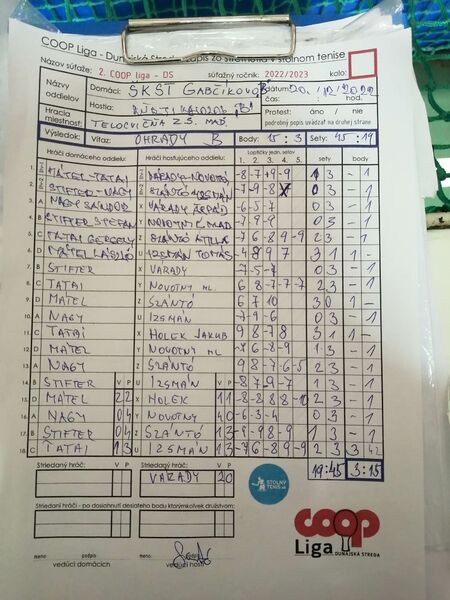 COOP Liga - Dunajská Streda zápis zo stretnutia v stolnom tenise
Názov súťaže: 2. COOP liga - DS súťažný ročník: 2022/2023 kolo:
Názvy oddielov Domáci: ŠKST GABČÍKOVO B dátum:
Hostia: čas: hod.
Hracia miestnosť: TELOCVIČŇA Z.Š. MAD Protest: áno / nie
podrobný popis uvádzať na druhej strane
Výsledok: Víťaz: OHRADY B Body: 15:3 Sety: 45:19
Hráči domáceho oddielu: Hráči hosťujúceho oddielu: Loptičky jedn. setov
1. 2. 3. 4. 5. sety body
1. MATEL-TATAI VÁRADY-NOVOTNÝ -8 -7 +9 -9 1 3 - 1
2. STIFTER-NAGY SZÁNTÓ IZSMÁN -7 -9 -8 0 3 - 1
3. A NAGY SÁNDOR X VÁRADY ÁRPÁD -6 -5 -7 0 3 - 1
4. B STIFTER ŠTEFAN Y NOVOTNÝ L. MAD -7 -9 -9 0 3 - 1
5. C TATAI GERGELY Z SZÁNTÓ ATTILA -7 6 -8 9 -9 2 3 - 1
6. D MATEL LÁSZLÓ U IZSMÁN TOMÁS -4 8 9 7 3 1 1 -
7. B STIFTER X VARADY -7 -5 -7 0 3 - 1
8. C TATAI Y NOVOTNÝ ML. 6 8 -7 -7 -7 2 3 - 1
9. D MATEL Z SZÁNTÓ 6 7 10 3 0 1 -
10. A NAGY U IZSMÁN -7 -9 -6 0 3 - 1
11. C TATAI X HOLEK JAKUB 9 8 -7 8 3 1 1 -
12. D MATEL Y NOVOTNÝ ML -7 6 -8 -9 1 3 - 1
13. A NAGY Z SZÁNTÓ 9 8 -7 -6 -5 2 3 - 1
14. B STIFTER V P U IZSMÁN V P -8 7 -9 -7 1 3 - 1
15. D MATEL 2 2 X HOLEK 1 1 -8 -8 8 8 -10 2 3 - 1
16. A NAGY 0 4 Y NOVOTNÝ 4 0 -6 -3 -4 0 3 - 1
17. B STIFTER 0 4 Z SZÁNTÓ 1 3 -9 -9 8 -9 1 3 - 1
18. C TATAI 1 3 U IZSMÁN 1 3 -7 6 -8 9 -9 2 3
Striedaný hráč: V P Striedaný hráč: V P 19:45 3:15
VARADY 2 0
STOLNÝ
TENIS.sk
Striedaní hráči - po dosiahnutí desiateho bodu ktorýmkoľvek družstvom:
coop
Liga DUNAJSKÁ STREDA
meno podpis meno podpis
vedúci domácich vedúci hostí